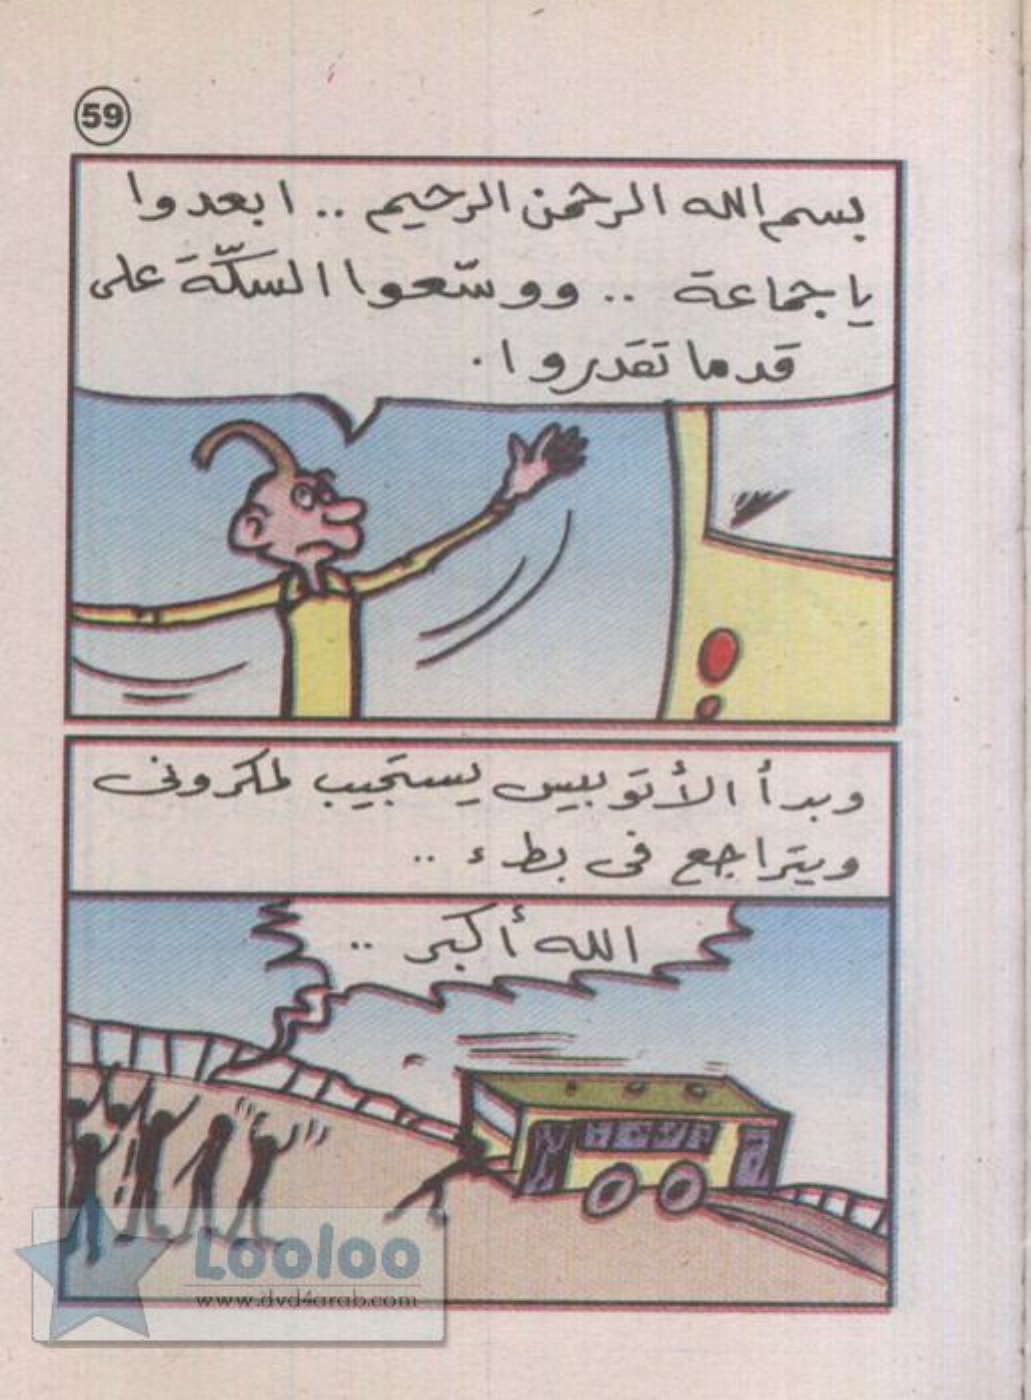 59
بسم الله الرحمن الرحيم .. ابعدوا
يا جماعة .. ووسّعوا السكّة على
قد ما تقَدروا .
وبدأ الأتوبيس يستجيب لمكرونى
ويتراجع فى بطء ..
الله أكبر ..
Looloo
www.dvd4arab.com